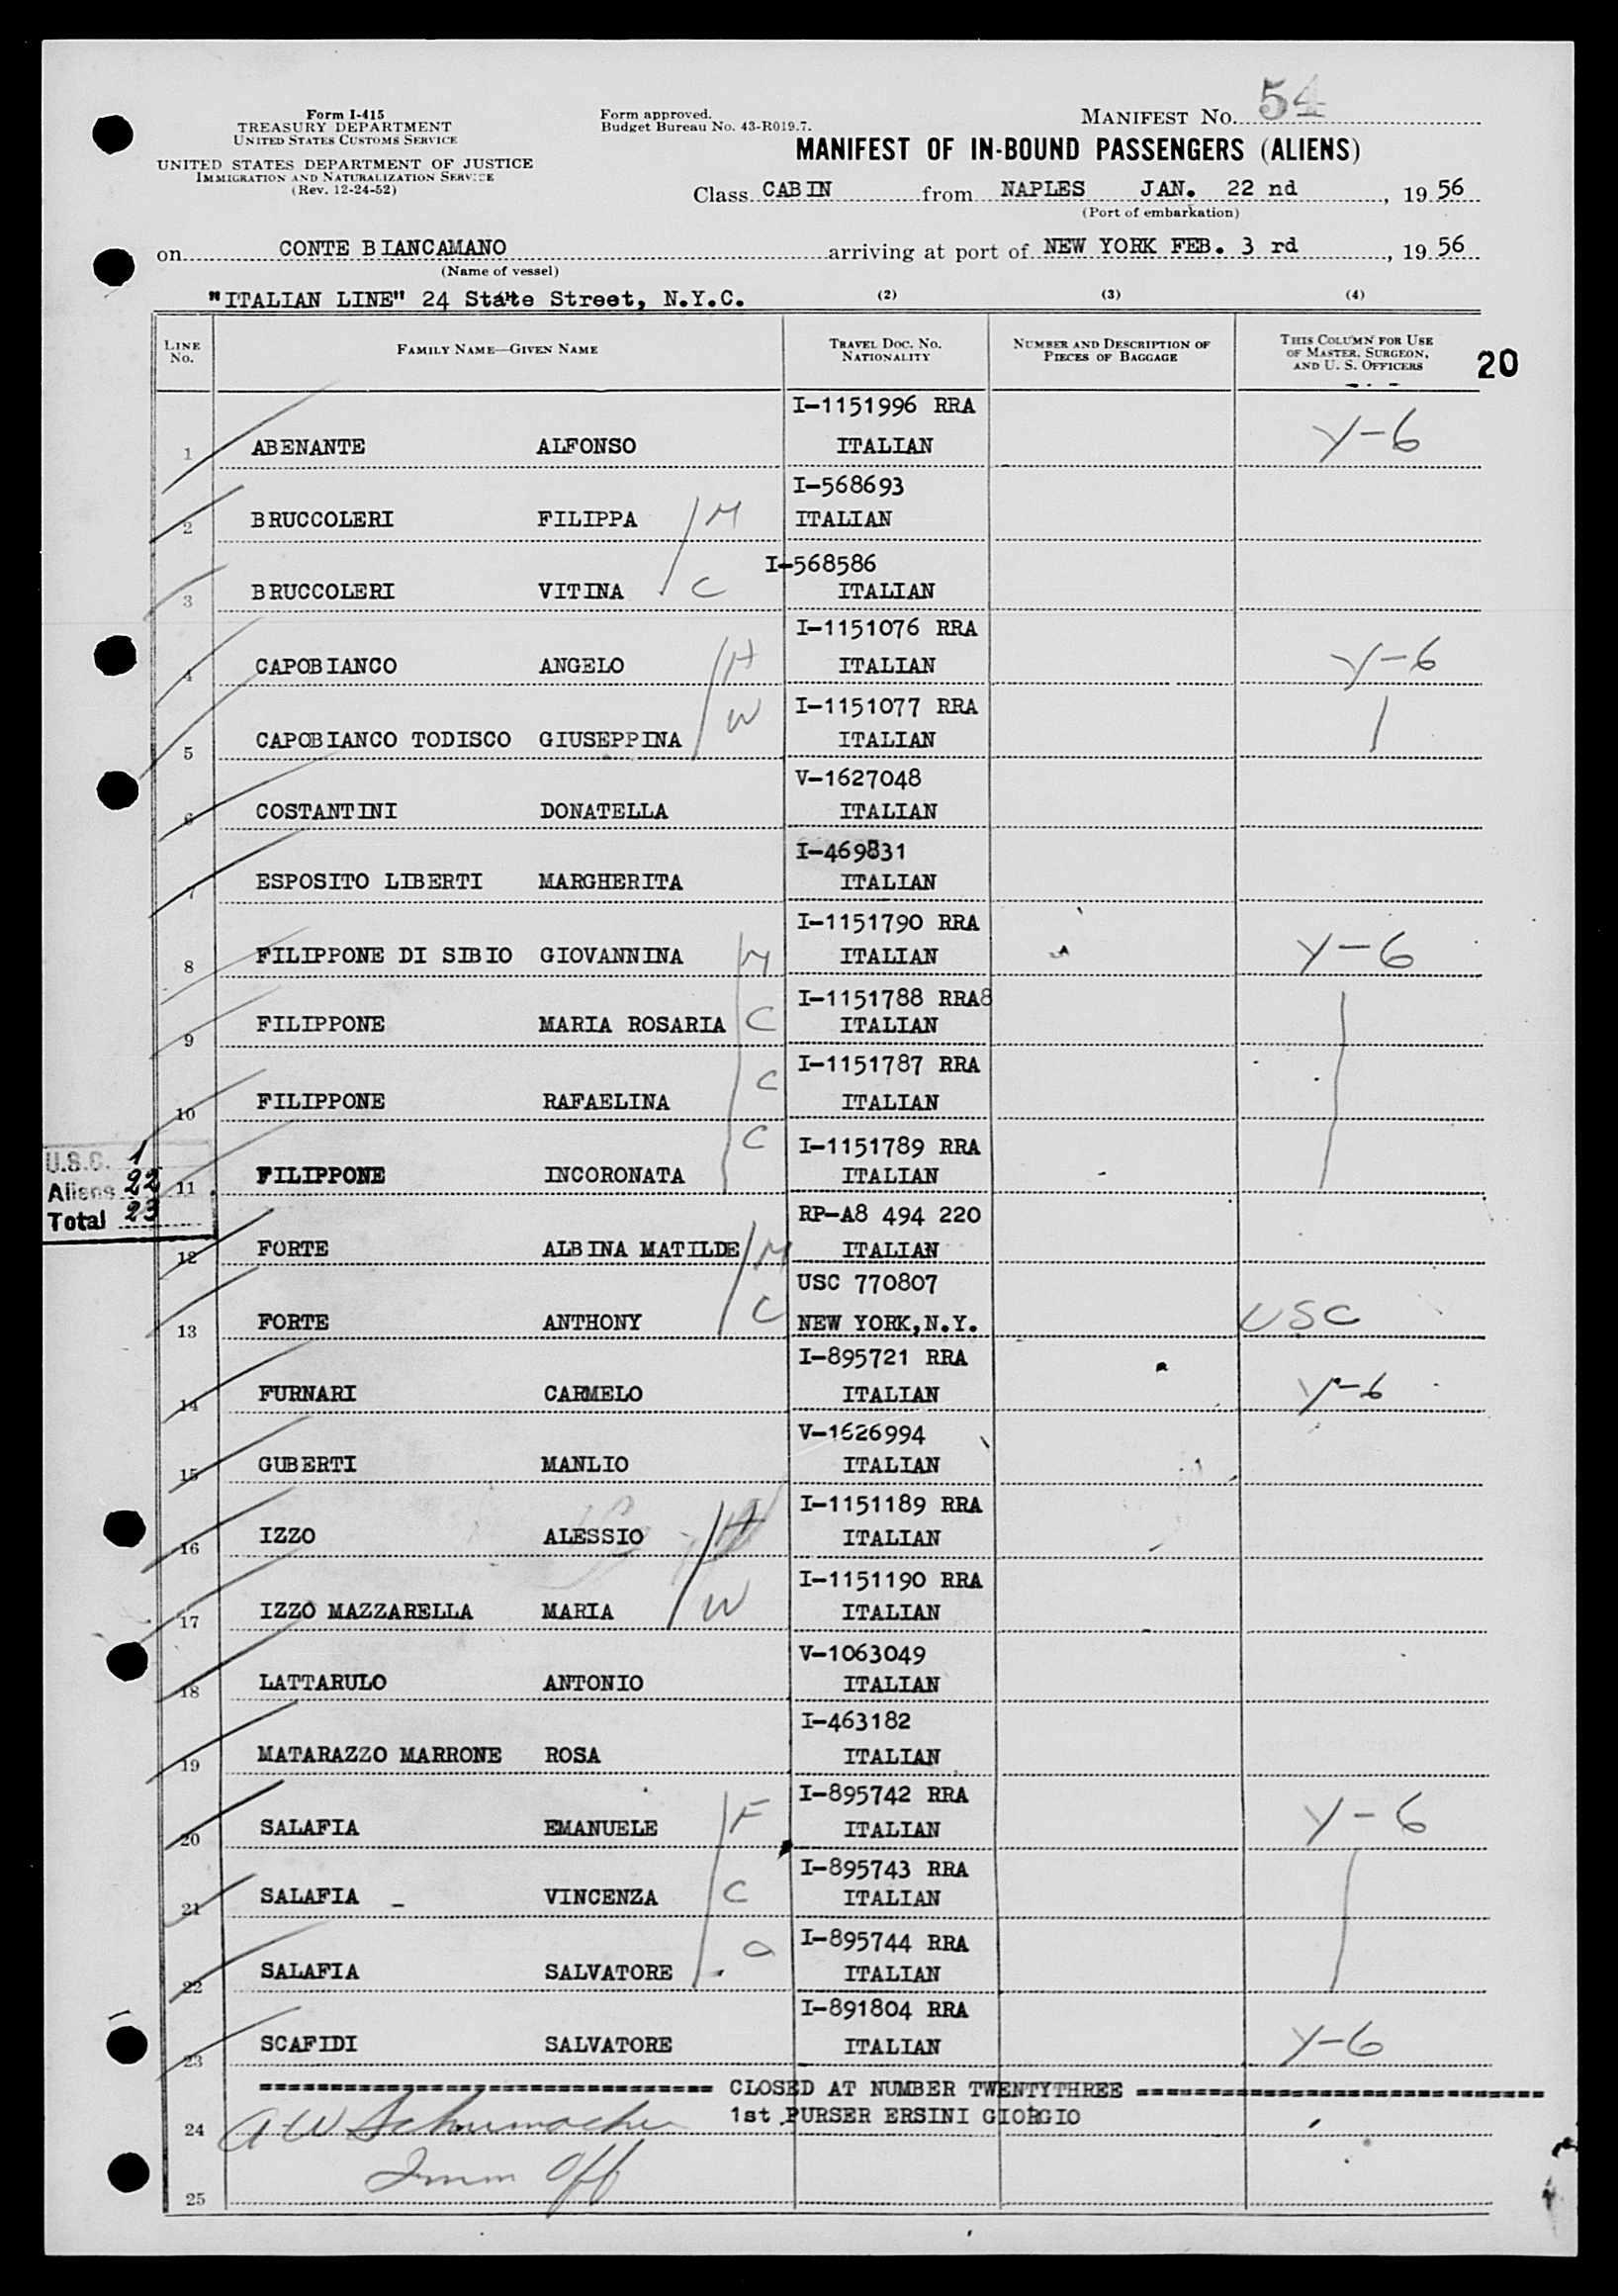 Form I-415
TREASURY DEPARTMENT
UNITED STATES CUSTOMS SERVICE
UNITED STATES DEPARTMENT OF JUSTICE
IMMIGRATION AND NATURALIZATION SERVICE
(Rev. 12-24-52)
Form approved.
Budget Bureau No. 43-R019.7.
MANIFEST No. 54
MANIFEST OF IN-BOUND PASSENGERS (ALIENS)
Class CABIN from NAPLES JAN. 22 nd, 19 56
(Port of embarkation)
on CONTE BIANCAMANO arriving at port of NEW YORK FEB. 3 rd, 19 56
(Name of vessel)
"ITALIAN LINE" 24 State Street, N.Y.C. (2) (3) (4)
LINE No. FAMILY NAME—GIVEN NAME TRAVEL DOC. NO. NATIONALITY NUMBER AND DESCRIPTION OF PIECES OF BAGGAGE THIS COLUMN FOR USE OF MASTER, SURGEON, AND U. S. OFFICERS 20
I-1151996 RRA
1 ABENANTE ALFONSO ITALIAN Y-6
I-568693
2 BRUCCOLERI FILIPPA M ITALIAN
I-568586
3 BRUCCOLERI VITINA C ITALIAN
I-1151076 RRA
4 CAPOBIANCO ANGELO H ITALIAN Y-6
I-1151077 RRA
5 CAPOBIANCO TODISCO GIUSEPPINA W ITALIAN
V-1627048
6 COSTANTINI DONATELLA ITALIAN
I-469831
7 ESPOSITO LIBERTI MARGHERITA ITALIAN
I-1151790 RRA
8 FILIPPONE DI SIBIO GIOVANNINA M ITALIAN Y-6
I-1151788 RRA8
9 FILIPPONE MARIA ROSARIA C ITALIAN
I-1151787 RRA
10 FILIPPONE RAFAELINA C ITALIAN
I-1151789 RRA
11 FILIPPONE INCORONATA C ITALIAN
U.S.C. 1
Aliens 22
Total 23
RP-A8 494 220
12 FORTE ALBINA MATILDE M ITALIAN
USC 770807
13 FORTE ANTHONY C NEW YORK,N.Y. USC
I-895721 RRA
14 FURNARI CARMELO ITALIAN Y-6
V-1626994
15 GUBERTI MANLIO ITALIAN
I-1151189 RRA
16 IZZO ALESSIO H ITALIAN
I-1151190 RRA
17 IZZO MAZZARELLA MARIA W ITALIAN
V-1063049
18 LATTARULO ANTONIO ITALIAN
I-463182
19 MATARAZZO MARRONE ROSA ITALIAN
I-895742 RRA
20 SALAFIA EMANUELE F ITALIAN Y-6
I-895743 RRA
21 SALAFIA - VINCENZA C ITALIAN
I-895744 RRA
22 SALAFIA SALVATORE C ITALIAN
I-891804 RRA
23 SCAFIDI SALVATORE ITALIAN Y-6
CLOSED AT NUMBER TWENTYTHREE
1st PURSER ERSINI GIORGIO
24 A W Schumacher
Imm Off
25